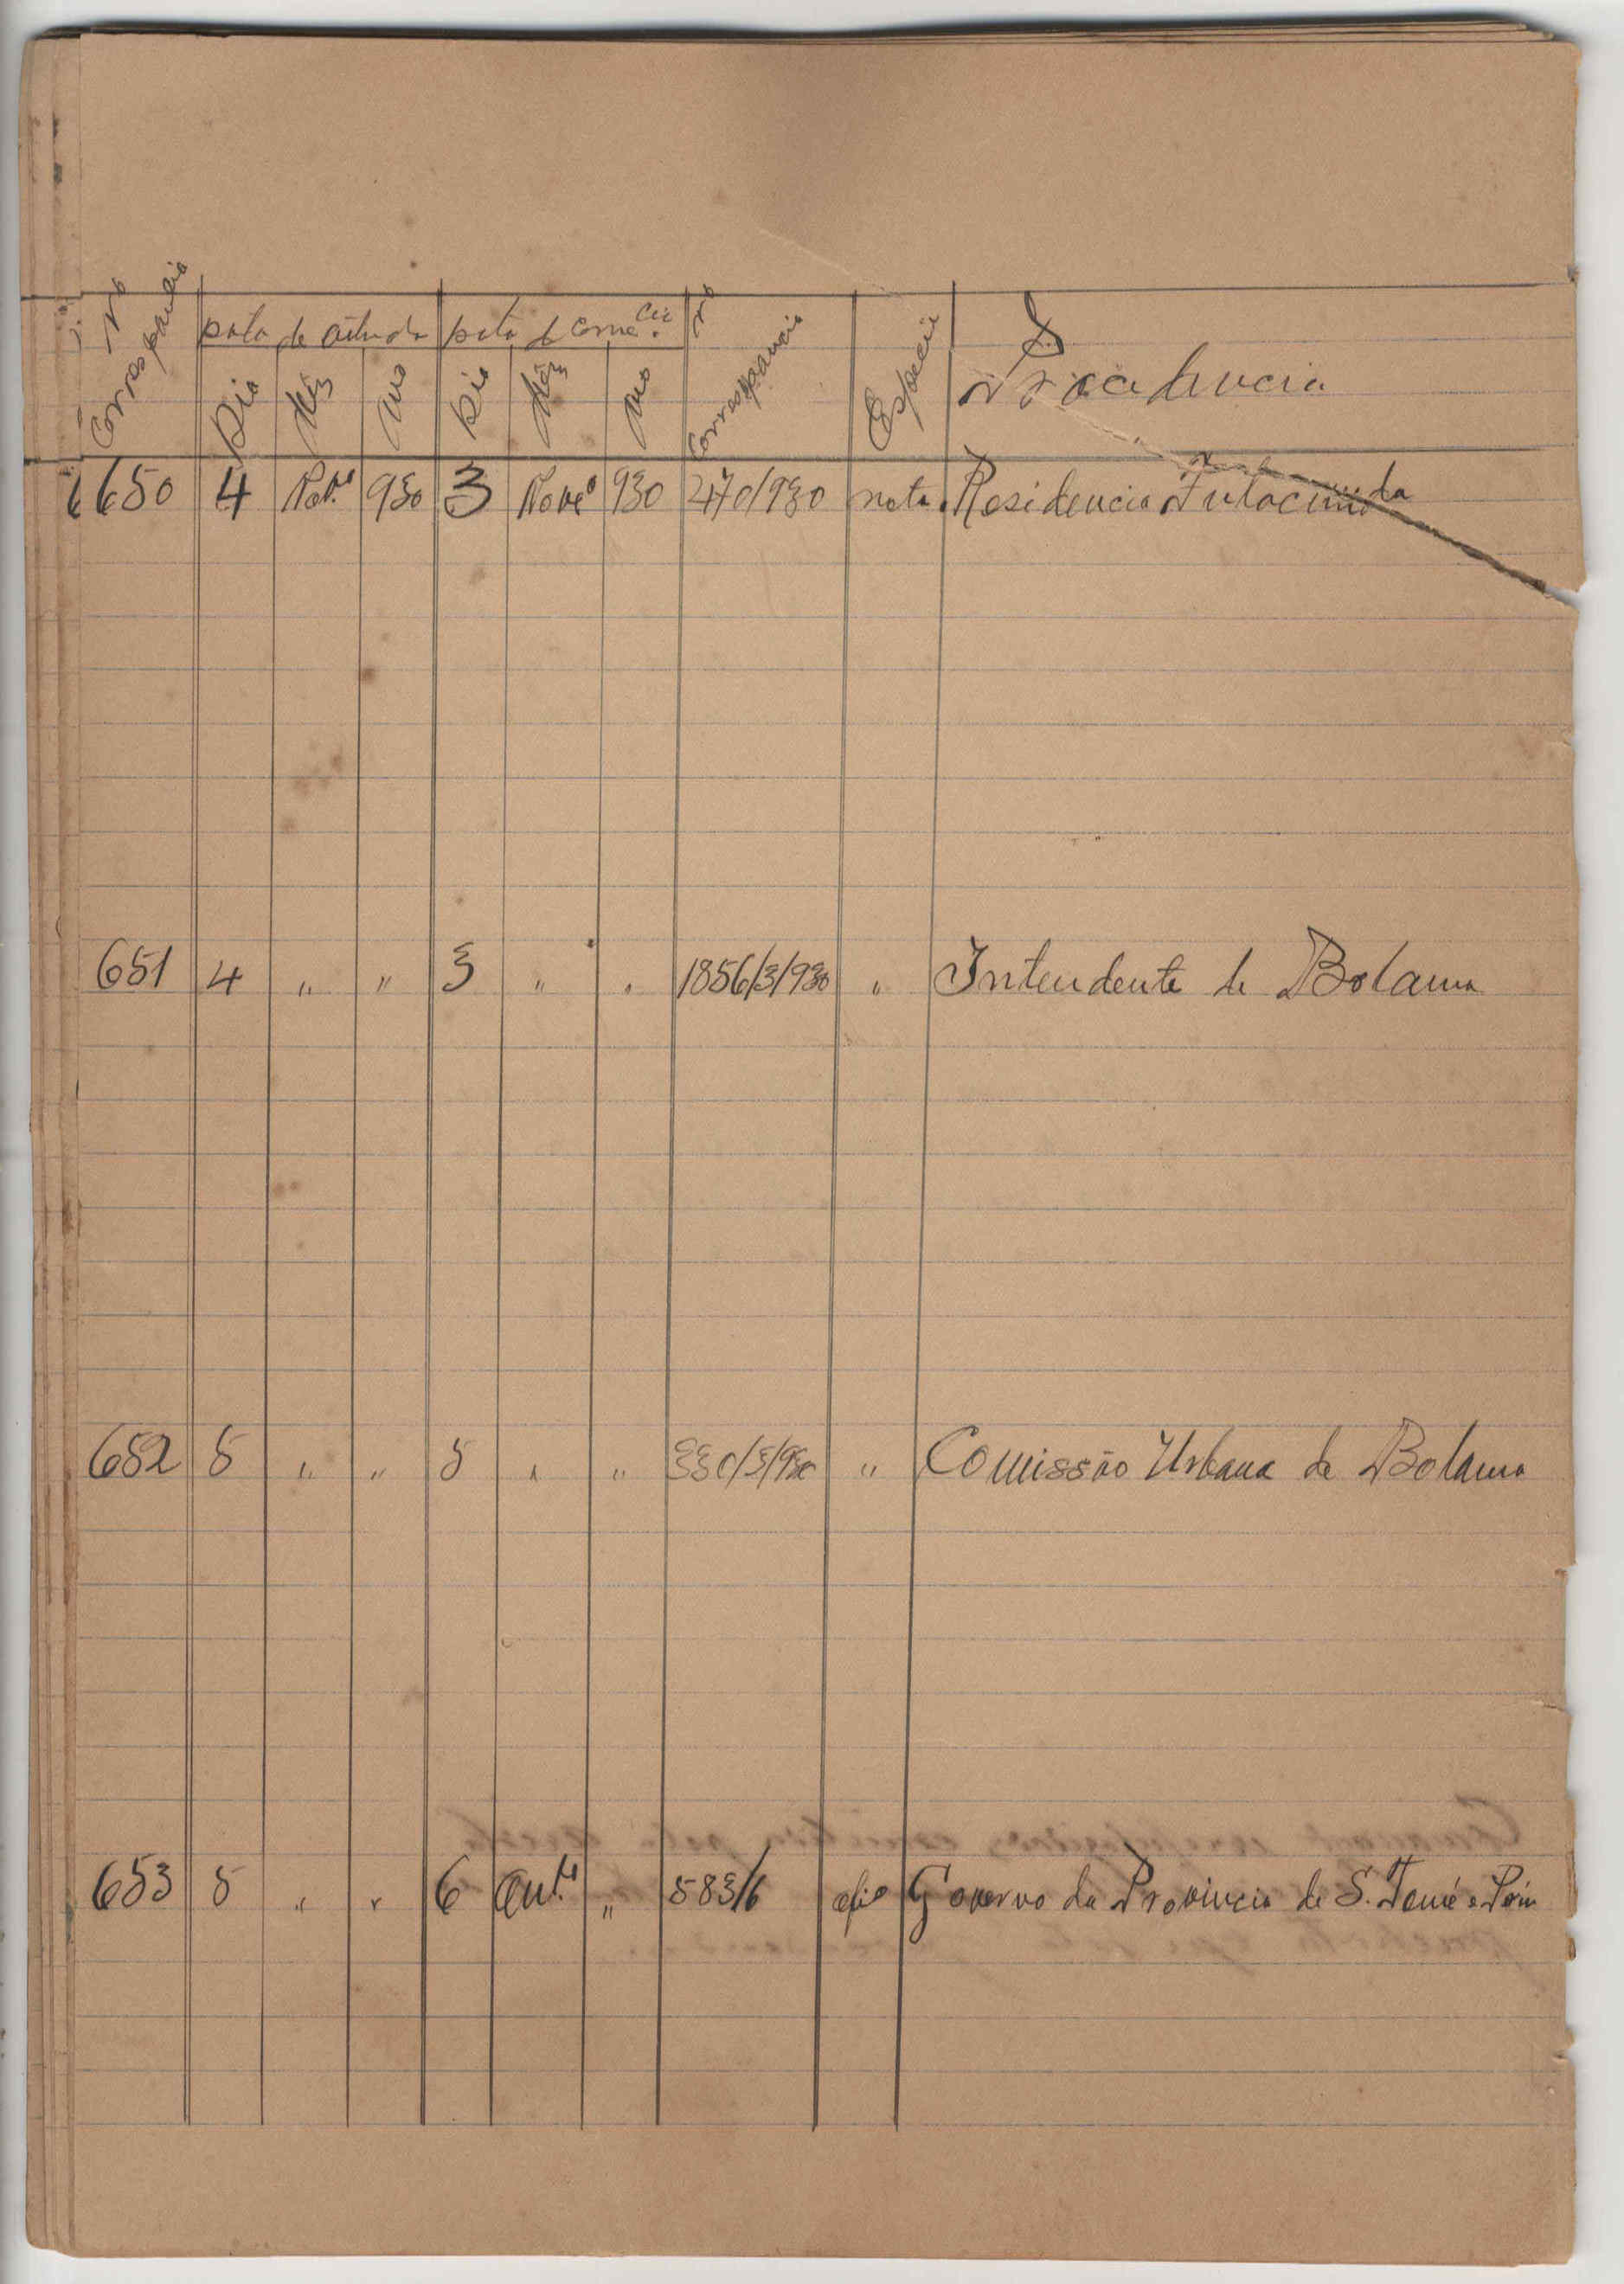 Nº Correspancia Data de entrada Data de corre.cia Nº Correspancia Especie Procedencia
Dia Mês Ano Dia Mês Ano
650 4 Nov.o 930 3 Nove.o 930 470/930 nota Residencia Fulacunda
651 4 " " 3 " " 1856/3/930 " Intendente de Bolama
652 5 " " 5 " " 330/3/930 " Comissão Urbana de Bolama
653 5 " " 6 Out.o " 583/6 ofio Governo da Provincia de S. Tomé e Prin